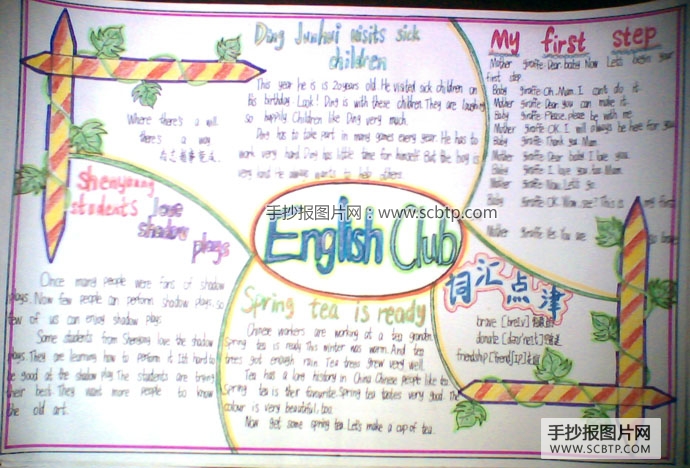 Where there's a will
there's a way
有志者事竟成
Ding Junhui visits sick
children
This year he is is 20 years old. He visited sick children on
his birthday. Look! Ding is with these children. They are laughing
so happily. Children like Ding very much.
Ding has to take part in many games every year. He has to
work very hard. Ding has little time for himself. But the boy is
very kind. He wants to help others.
My first step
Mother giraffe Dear baby Now Let's begin your
first step
Baby giraffe Oh, Mum. I can't do it.
Mother giraffe Dear you can make it.
Baby giraffe Please, please be with me
Mother giraffe OK. I will always be here for you
Baby giraffe Thank you Mum
Mother giraffe Dear baby I love you
Baby giraffe I love you too Mum
Mother giraffe Now, Let's go
Baby giraffe OK Mum, see? This is my first
Mother giraffe Yes You are so brave
Shenyang
students love
shadow
plays
Once many people were fans of shadow
plays. Now few people can perform shadow plays, so
few of us can enjoy shadow plays
Some students from Shenyang love the shadow
plays. They are learning how to perform it. It's hard to
be good at the shadow play. The students are trying
their best. They want more people to know
the old art.
手抄报图片网：www.scbtp.com
English Club
Spring tea is ready
Chinese workers are working at a tea granden.
Spring tea is ready. This winter was warm. And tea
trees got enough rain. Tea trees grew very well.
Tea has a long history in China. Chinese people like tea.
Spring tea is their favourite. Spring tea tastes very good. The
colour is very beautiful, too.
Now get some spring tea. Let's make a cup of tea.
词汇点津
brave [breiv] 勇敢的
donate
friendship
手抄报图片网
WWW.SCBTP.COM